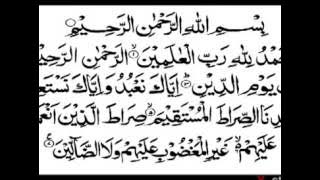 بِسْمِ اللهِ الرَّحْمٰنِ الرَّحِيْمِ
مْدُ لِلّٰهِ رَبِّ الْعٰلَمِيْنَ الرَّحْمٰنِ الرَّحِيْ
يَوْمِ الدِّيْنِ اِيَّاكَ نَعْبُدُ وَاِيَّاكَ نَسْتَعِ
دِنَا الصِّرَاطَ الْمُسْتَقِيْمَ صِرَاطَ الَّذِيْنَ اَنْعَم
عَلَيْهِمْ غَيْرِ الْمَغْضُوْبِ عَلَيْهِمْ وَلَا الضَّآلِّيْنَ